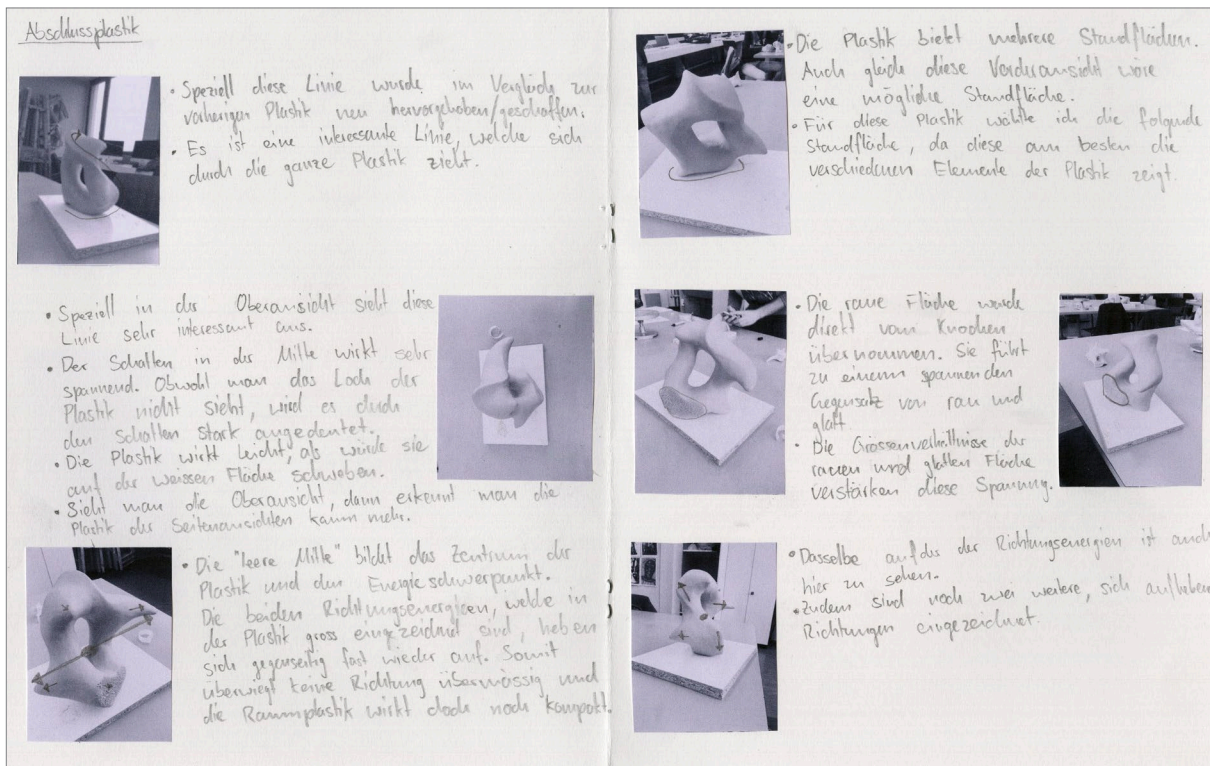 Abschlussplastik
• Speziell diese Linie wurde im Vergleich zur
vorherigen Plastik neu hervorgehoben/geschaffen.
• Es ist eine interessante Linie, welche sich
durch die ganze Plastik zieht.
• Speziell in der Oberansicht sieht diese
Linie sehr interessant aus.
• Der Schatten in der Mitte wirkt sehr
spannend. Obwohl man das Loch der
Plastik nicht sieht, wird es durch
den Schatten stark angedeutet.
• Die Plastik wirkt leicht, als würde sie
auf der weissen Fläche schweben.
• Sieht man die Oberansicht, dann erkennt man die
Plastik der Seitenansichten kaum mehr.
• Die "leere Mitte" bildet das Zentrum der
Plastik und den Energieschwerpunkt.
Die beiden Richtungsenergien, welche in
der Plastik gross eingezeichnet sind, heben
sich gegenseitig fast wieder auf. Somit
überwiegt keine Richtung übermässig und
die Raumplastik wirkt doch noch kompakt.
• Die Plastik bietet mehrere Standflächen.
Auch gleich diese Vorderansicht wäre
eine mögliche Standfläche.
• Für diese Plastik wählte ich die folgende
Standfläche, da diese am besten die
verschiedenen Elemente der Plastik zeigt.
• Die raue Fläche wurde
direkt vom Knochen
übernommen. Sie führt
zu einem spannenden
Gegensatz von rau und
glatt.
• Die Grössenverhältnisse der
rauen und glatten Fläche
verstärken diese Spannung.
• Dasselbe der Richtungsenergien ist auch
hier zu sehen.
• Zudem sind noch zwei weitere, sich
Richtungen eingezeichnet.